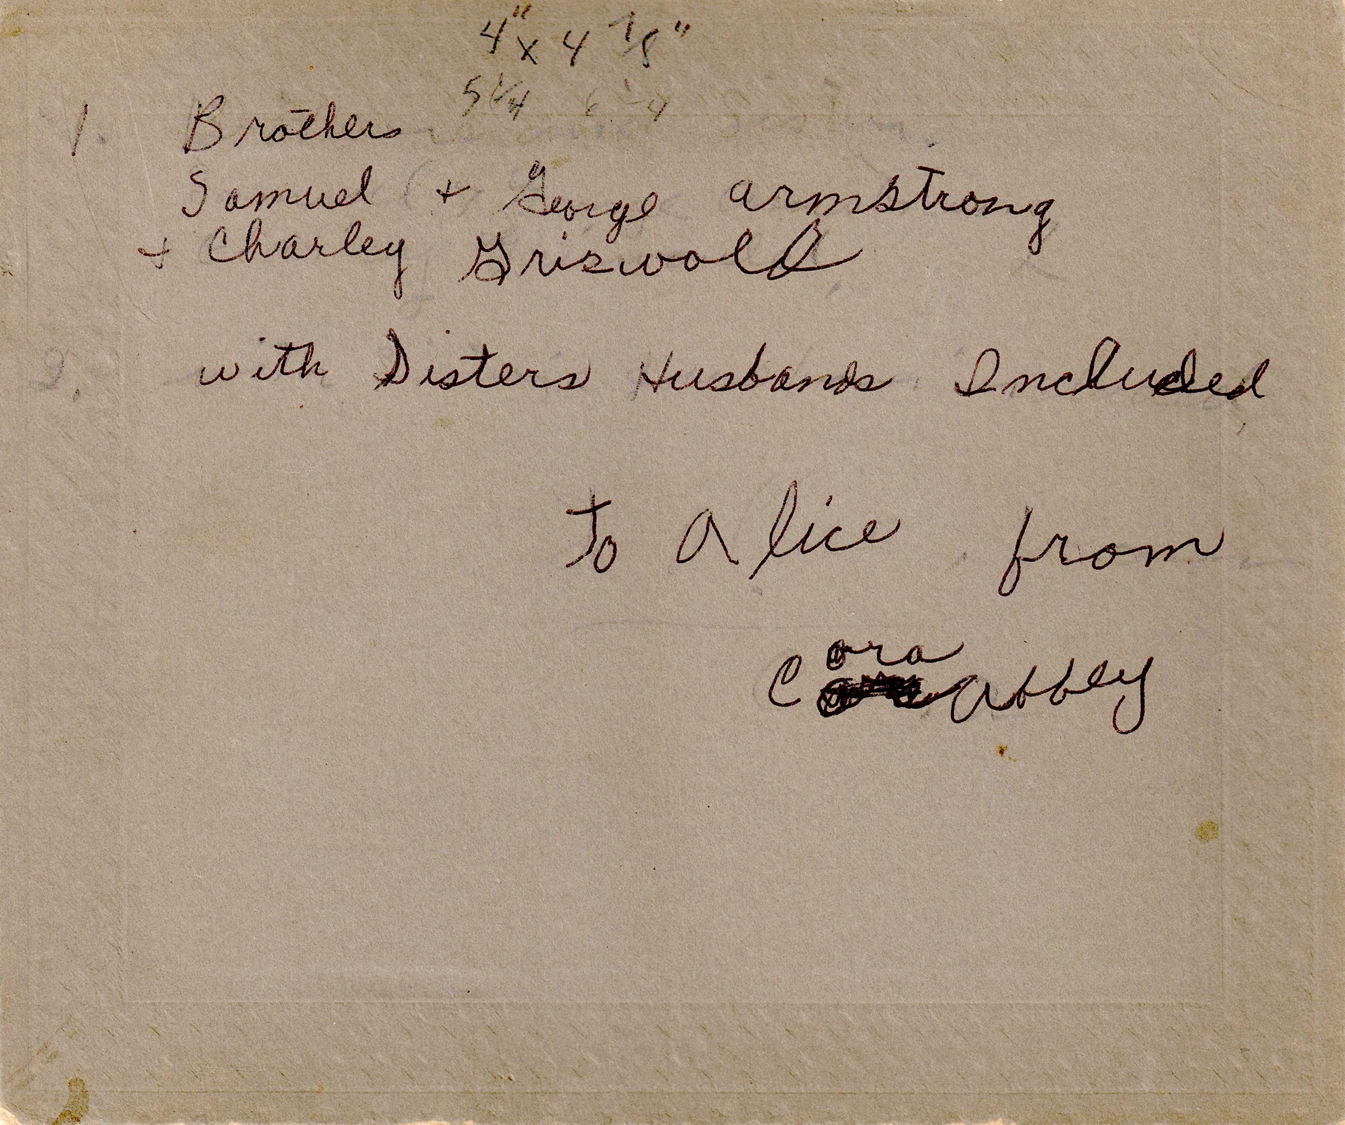 4" x 4 7/8"
5 1/4 6 1/4
1. Brothers
Samuel + George Armstrong
+ Charley Griswold
2. with Sisters Husbands Included
To Alice from
Cora Abbey